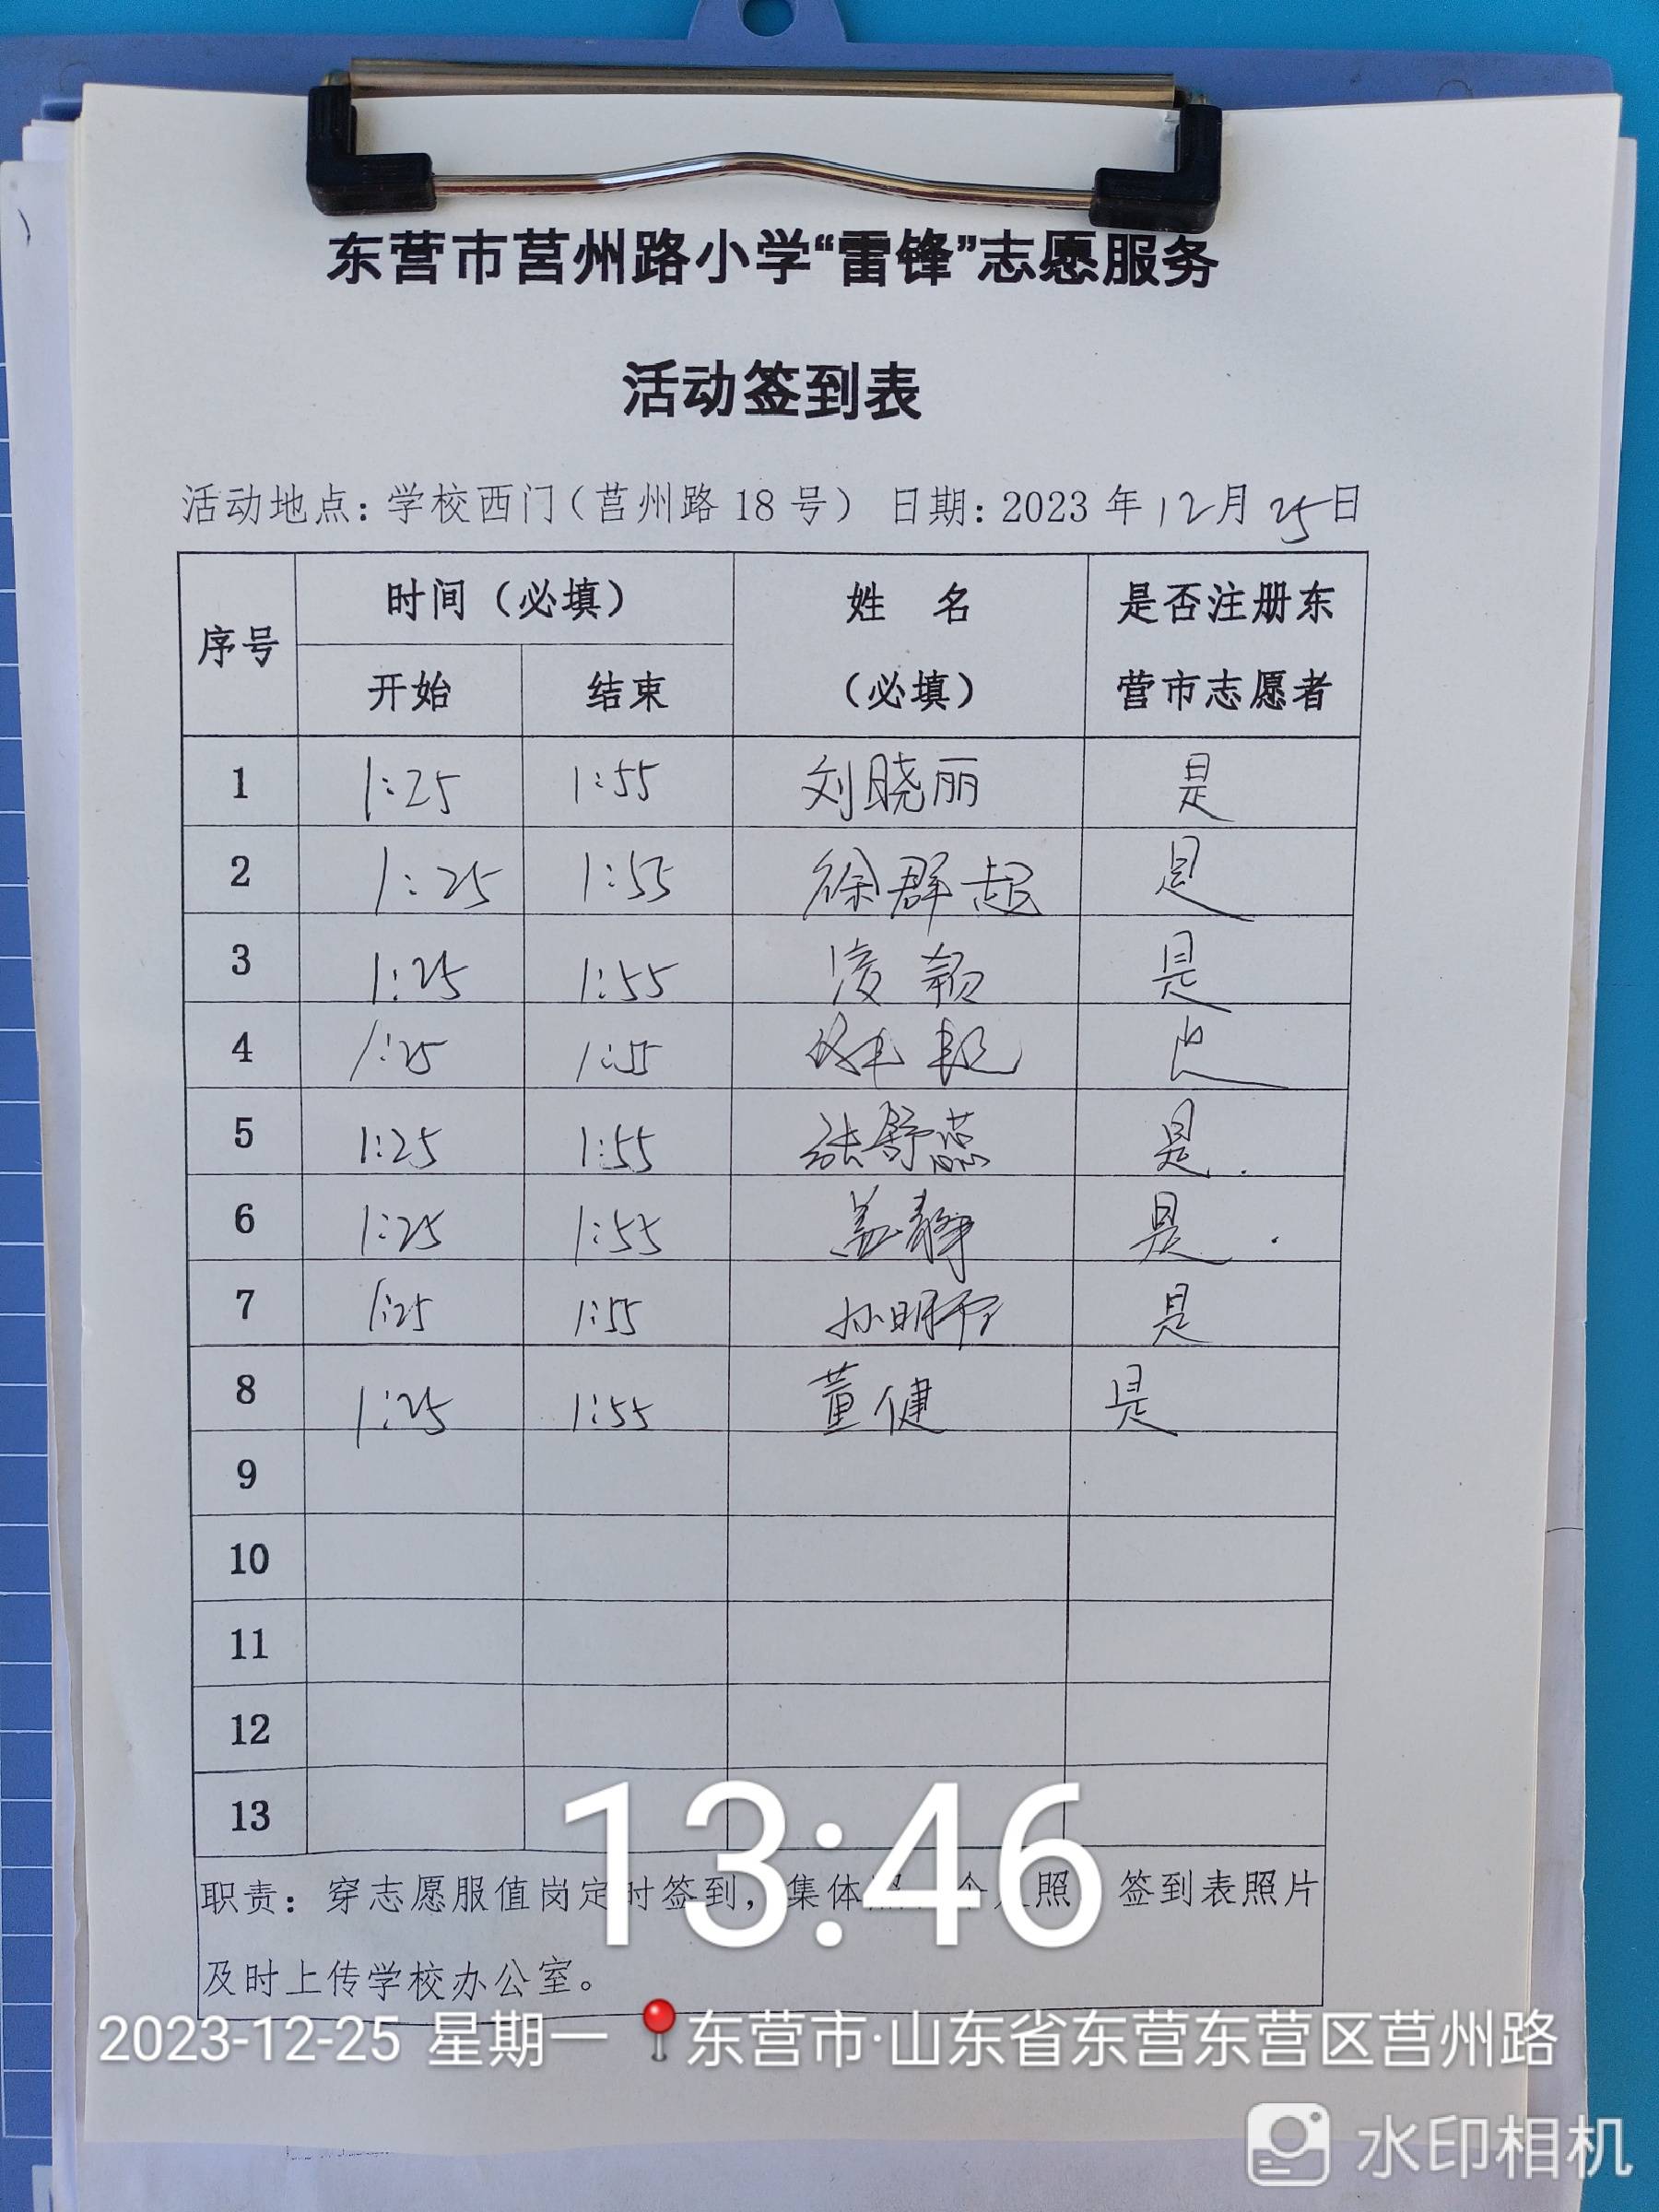 东营市莒州路小学“雷锋”志愿服务
活动签到表
活动地点：学校西门（莒州路 18 号） 日期：2023 年 12 月 25 日
序号 时间（必填） 姓 名（必填） 是否注册东营市志愿者
开始 结束
1 1:25 1:55 刘晓丽 是
2 1:25 1:55 徐群超 是
3 1:25 1:55 凌颖 是
4 1:25 1:55 是
5 1:25 1:55 张舒蕊 是.
6 1:25 1:55 盖静 是.
7 1:25 1:55 孙明 是
8 1:25 1:55 董健 是
9
10
11
12
13
职责：穿志愿服值岗定时签到，集体照 个 照 签到表照片
及时上传学校办公室。
13:46
2023-12-25 星期一 东营市·山东省东营东营区莒州路
水印相机